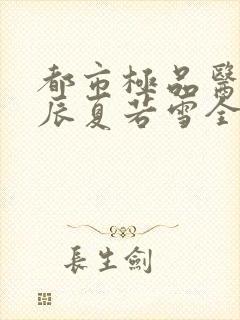 都市極品醫
辰夏若雪全
長生劍